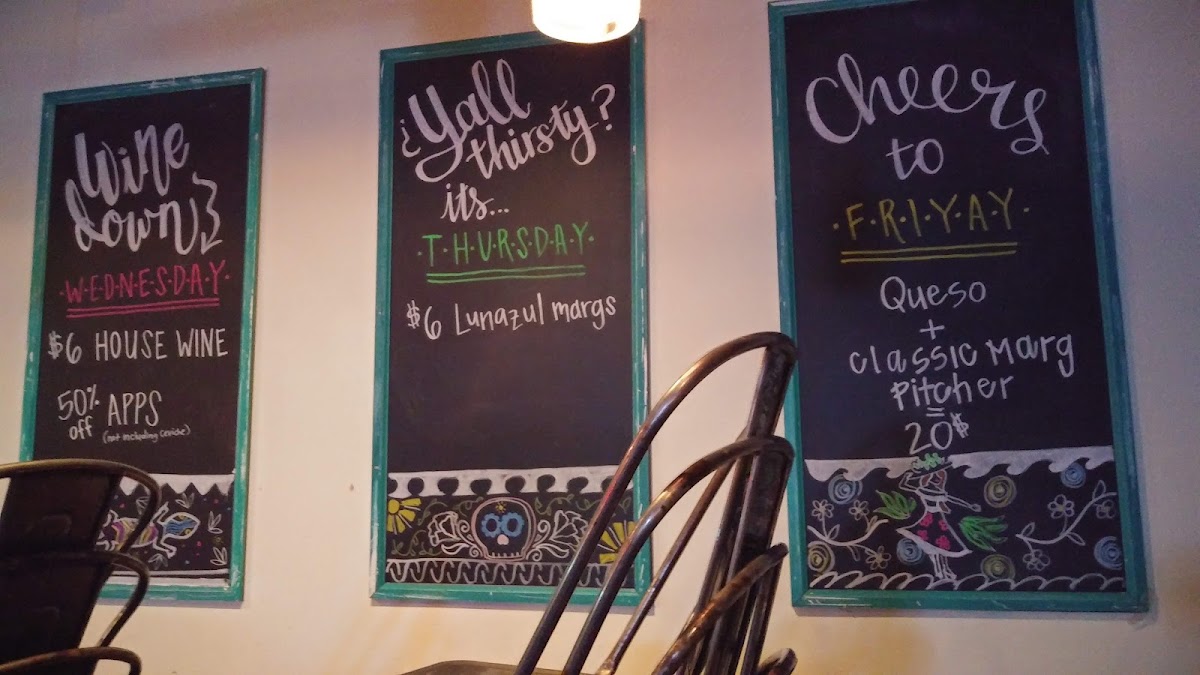 Wine
down
W·E·D·N·E·S·D·A·Y
$6 HOUSE WINE
50% off APPS
(not including ceviche)
¿Yall
thirsty?
its...
T·H·U·R·S·D·A·Y
$6 Lunazul margs
Cheers
to
F·R·I·Y·A·Y
Queso
+
Classic Marg
Pitcher
=
20$